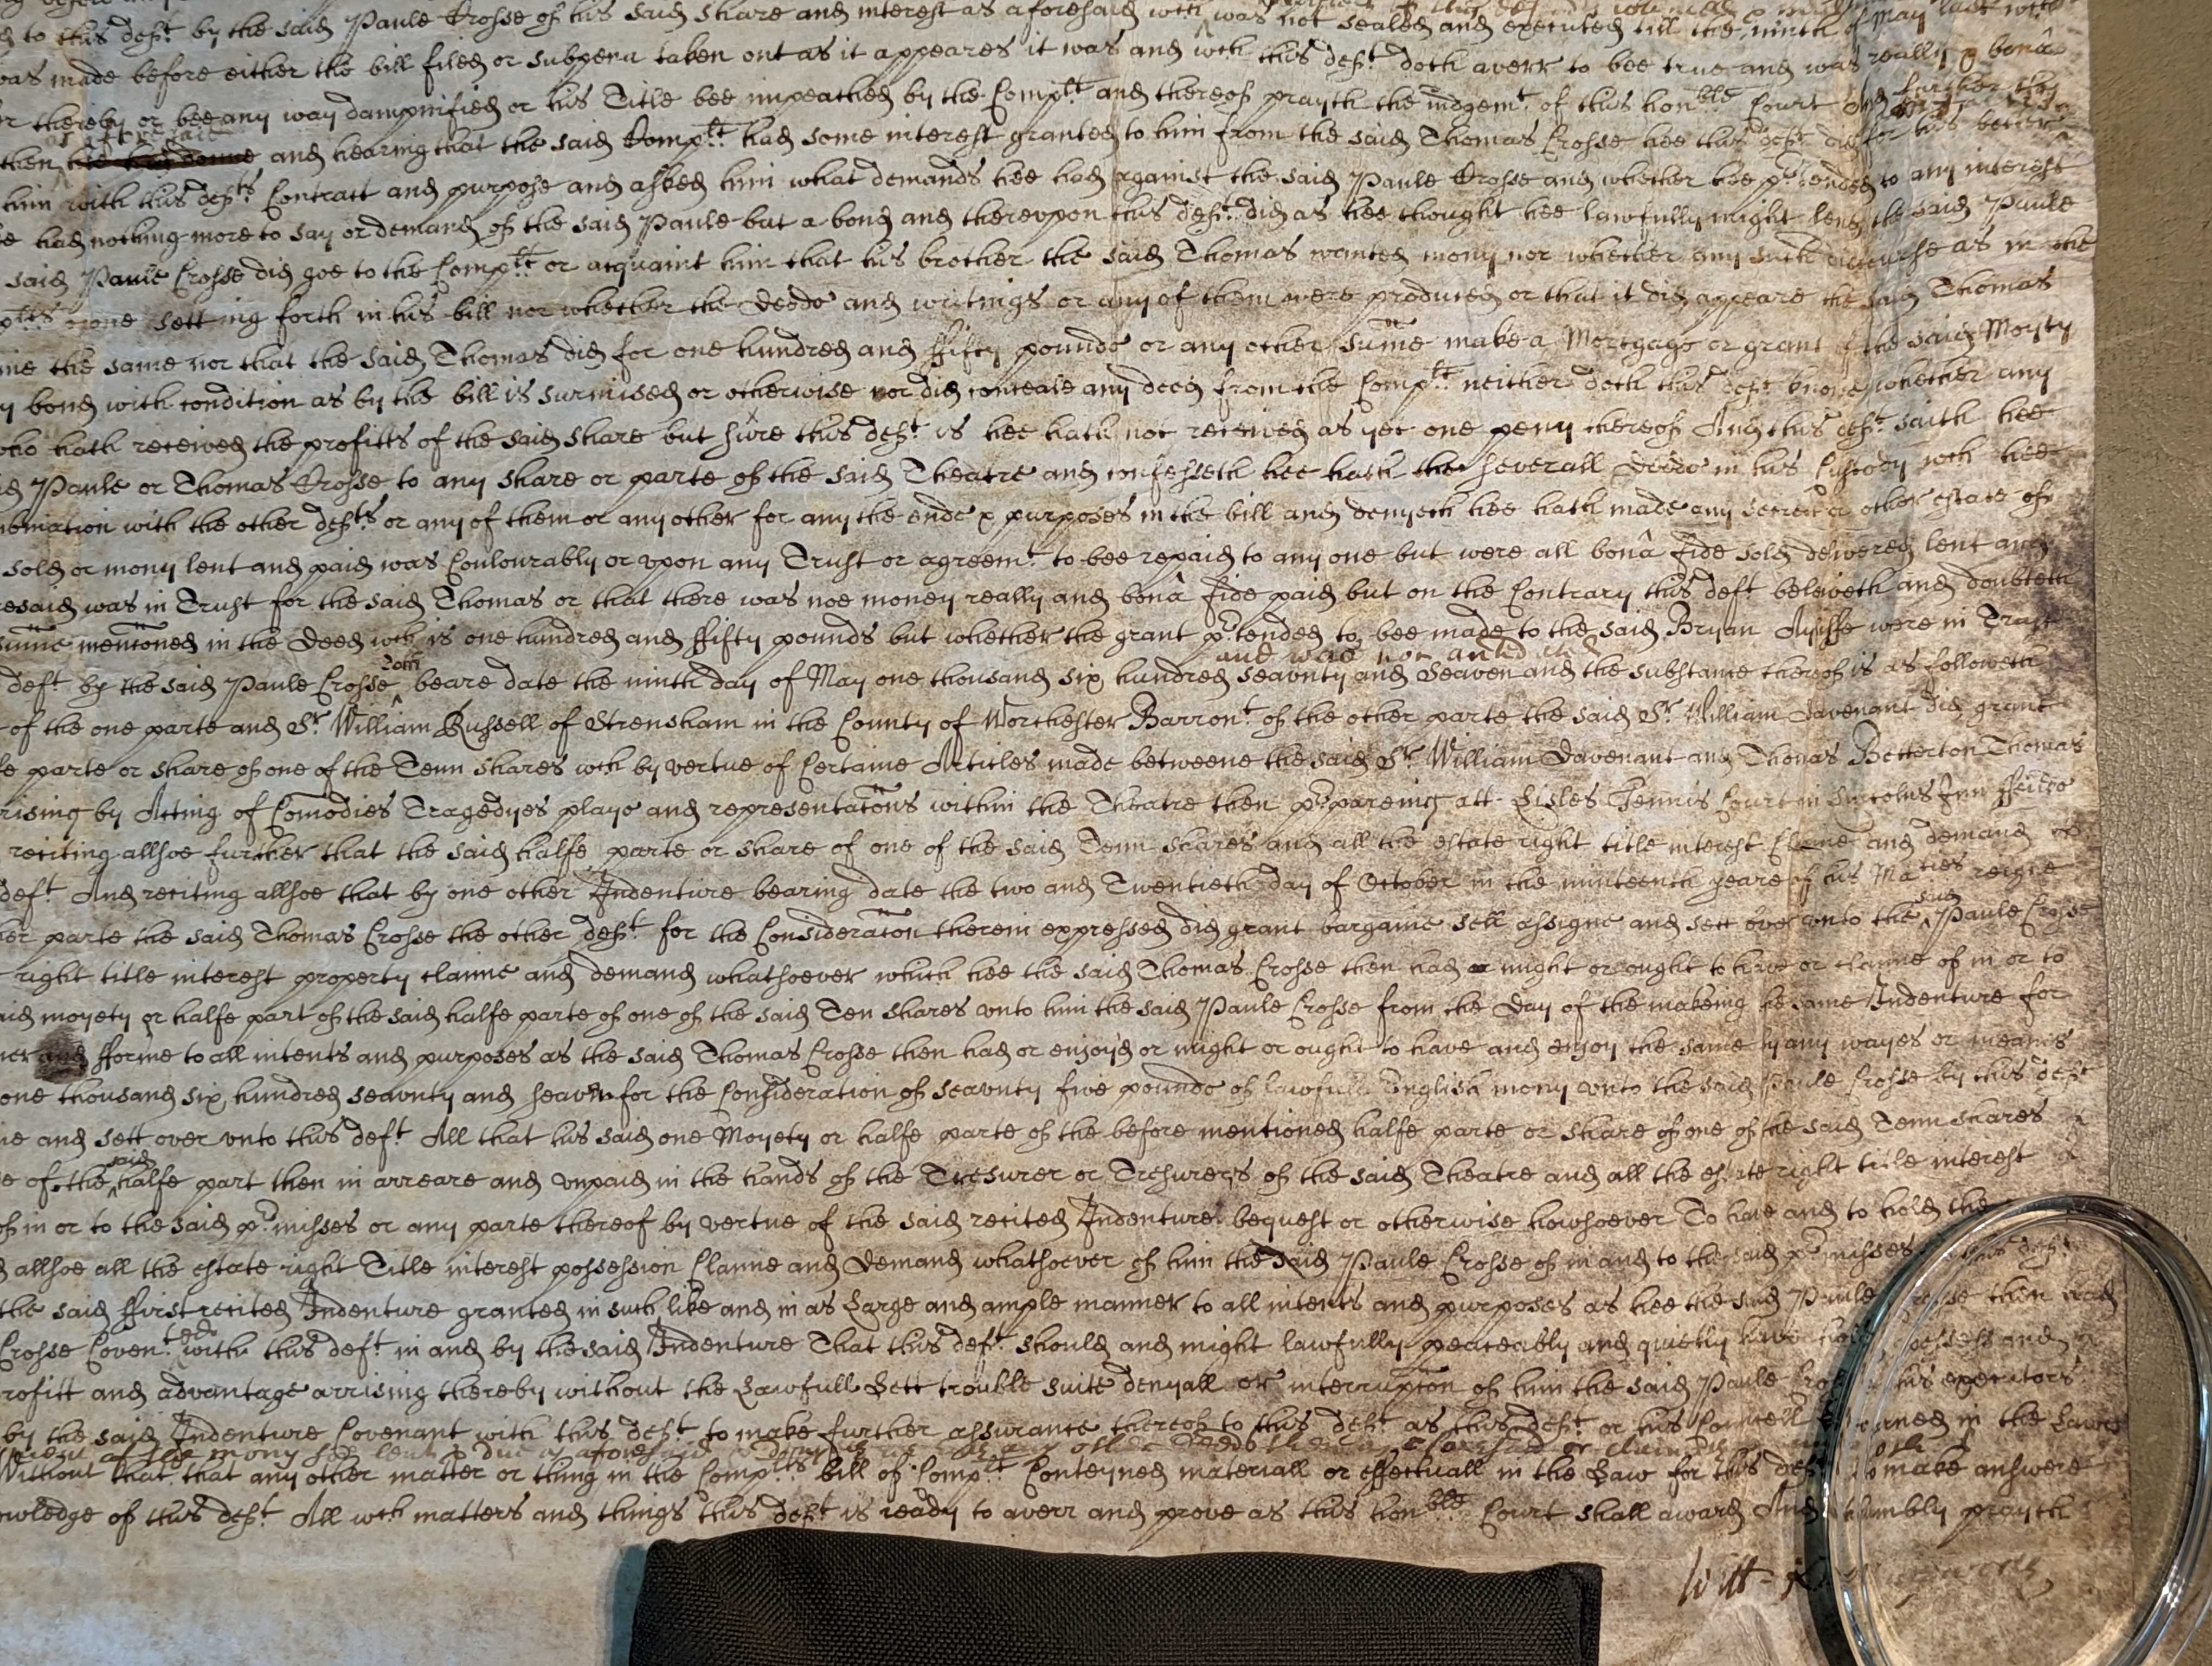 to this def.t by the said Paule Crosse of his said share and interest as aforesaid wch was not sealed and executed till the ninth of May last
was made before either the bill filed or subpena taken out as it appeares it was and wch this def.t doth averr to bee true and was really & bonâ
thereby or bee any way dampnified or his Title bee impeached by the Comp.lt and thereof prayth the iudgem.t of this hon.ble Court And further
then and hearing that the said Comp.lt had some interest granted to him from the said Thomas Crosse hee this def.t did for his better
him with this def.ts Contract and purpose and asked him what demands hee had against the said Paule Crosse and whether hee p.rtended to any interest
had nothing more to say or demand of the said Paule but a bond and therevpon this def.t did as hee thought hee lawfully might lend the said Paule
said Paule Crosse did goe to the Comp.lt or acquaint him that his brother the said Thomas wanted mony nor whether any such discourse as in the
setting forth in his bill nor whether the Deeds and writings or any of them were produced or that it did appeare the said Thomas
the same nor that the said Thomas did for one hundred and ffifty pounds or any other sume make a Mortgage or grant of the said Moyty
bond with condition as by the bill is surmised or otherwise nor did conceale any deed from the Comp.lt neither doth this def.t know whether any
who hath received the profitts of the said share but sure this def.t is hee hath not received as yet one peny thereof And this def.t saith hee
Paule or Thomas Crosse to any share or parte of the said Theatre and confesseth hee hath the severall Deeds in his Custody wch hee
with the other def.ts or any of them or any other for any the ends & purposes in the bill and denyeth hee hath made any secret or other estate of
sold or mony lent and paid was Coulourably or vpon any Trust or agreem.t to bee repaid to any one but were all bonâ fide sold delivered lent and
was in Trust for the said Thomas or that there was noe money really and bonâ fide paid but on the Contrary this def.t beleiveth and doubteth
sume mentioned in the Deed wch is one hundred and ffifty pounds but whether the grant p.rtended to bee made to the said Bryan Ayliffe were in Trust
and was not antedated
def.t by the said Paule Crosse doth beare date the ninth day of May one thousand six hundred seavnty and Seaven and the substance thereof is as followeth
of the one parte and S.r William Russell of Strensham in the County of Worchester Barron.t of the other parte the said S.r William Davenant did grant
parte or share of one of the Tenn shares wch by vertue of Certaine Articles made betweene the said S.r William Davenant and Thomas Betterton Thomas
by Acting of Comodies Tragedyes playes and representatons within the Theatre then p.rpareing att Lisles Tennis Court in Lincolns Inn ffeilds
reciting allsoe further that the said halfe parte or share of one of the said Tenn shares and all the estate right title interest Claime and demand
def.t And reciting allsoe that by one other Indenture bearing date the two and Twentieth day of October in the nineteenth yeare of his Ma.ties reigne
parte the said Thomas Crosse the other def.t for the Consideraton therein expressed did grant bargaine sell assigne and sett over vnto the said Paule Crosse
right title interest property claime and demand whatsoever which hee the said Thomas Crosse then had or might or ought to have or claime of in or to
moyety or halfe part of the said halfe parte of one of the said Ten shares vnto him the said Paule Crosse from the Day of the makeing the same Indenture for
and fforme to all intents and purposes as the said Thomas Crosse then had or enjoyd or might or ought to have and enjoy the same by any wayes or meanes
one thousand six hundred seavnty and seaven for the Consideration of seavnty five pounds of lawfull English mony vnto the said Paule Crosse by this def.t
and sett over vnto this def.t All that his said one Moyety or halfe parte of the before mentioned halfe parte or share of one of the said Tenn shares
of the said halfe part then in arreare and vnpaid in the hands of the Tresurer or Tresurers of the said Theatre and all the estate right title interest
of in or to the said p.rmisses or any parte thereof by vertue of the said recited Indenture bequest or otherwise howsoever To have and to hold the
allsoe all the estate right Title interest possession Claime and Demand whatsoever of him the said Paule Crosse of in and to the said p.rmisses this def.t
the said ffirst recited Indenture granted in such like and in as Large and ample manner to all intents and purposes as hee the said Paule Crosse then had
Crosse Coven.ted with this def.t in and by the said Indenture That this def.t should and might lawfully peaceably and quietly have hold possess and
and advantage arrising thereby without the Lawfull Lett trouble suite denyall or interrupton of him the said Paule Crosse his executors
by the said Indenture Covenant with this def.t to make further assurance thereof to this def.t as this def.t or his Councell learned in the Lawes
mony soe lent & due as aforesaid
Without that that any other matter or thing in the Comp.lts bill of Comp.lt Conteyned materiall or effectuall in the Law for this def.t to make answere
of this def.t All wch matters and things this def.t is ready to averr and prove as this hon.ble Court shall award And humbly prayth
Will